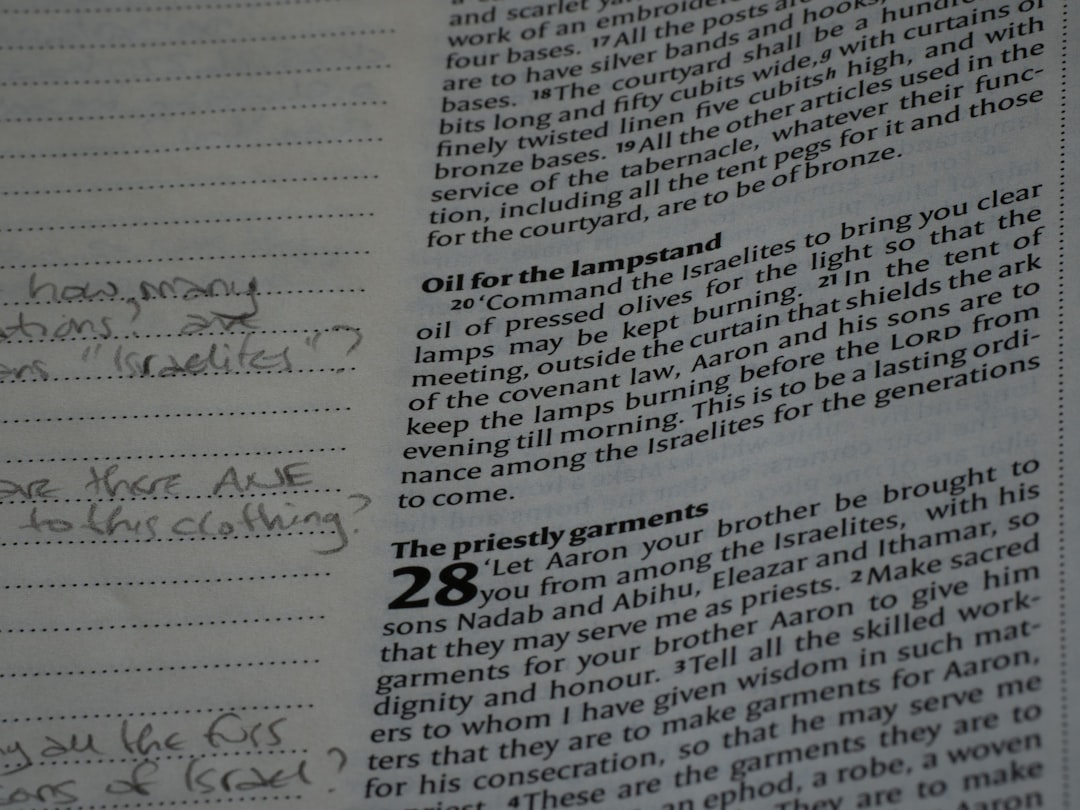 how many
ations? are
"Israelites"?
are there ANE
to this clothing?
all the fuss
of Israel?
and scarlet
work of an
four bases. 17All the posts
are to have silver bands and hooks,
bases. 18The courtyard shall be a
bits long and fifty cubits wide,g with curtains of
finely twisted linen five cubitsh high, and with
bronze bases. 19All the other articles used in the
service of the tabernacle, whatever their func-
tion, including all the tent pegs for it and those
for the courtyard, are to be of bronze.
Oil for the lampstand
20‘Command the Israelites to bring you clear
oil of pressed olives for the light so that the
lamps may be kept burning. 21In the tent of
meeting, outside the curtain that shields the ark
of the covenant law, Aaron and his sons are to
keep the lamps burning before the LORD from
evening till morning. This is to be a lasting ordi-
nance among the Israelites for the generations
to come.
The priestly garments
28 ‘Let Aaron your brother be brought to
you from among the Israelites, with his
sons Nadab and Abihu, Eleazar and Ithamar, so
that they may serve me as priests. 2Make sacred
garments for your brother Aaron to give him
dignity and honour. 3Tell all the skilled work-
ers to whom I have given wisdom in such mat-
ters that they are to make garments for Aaron,
for his consecration, so that he may serve me
4These are the garments they are to
an ephod, a robe, a woven
They are to make